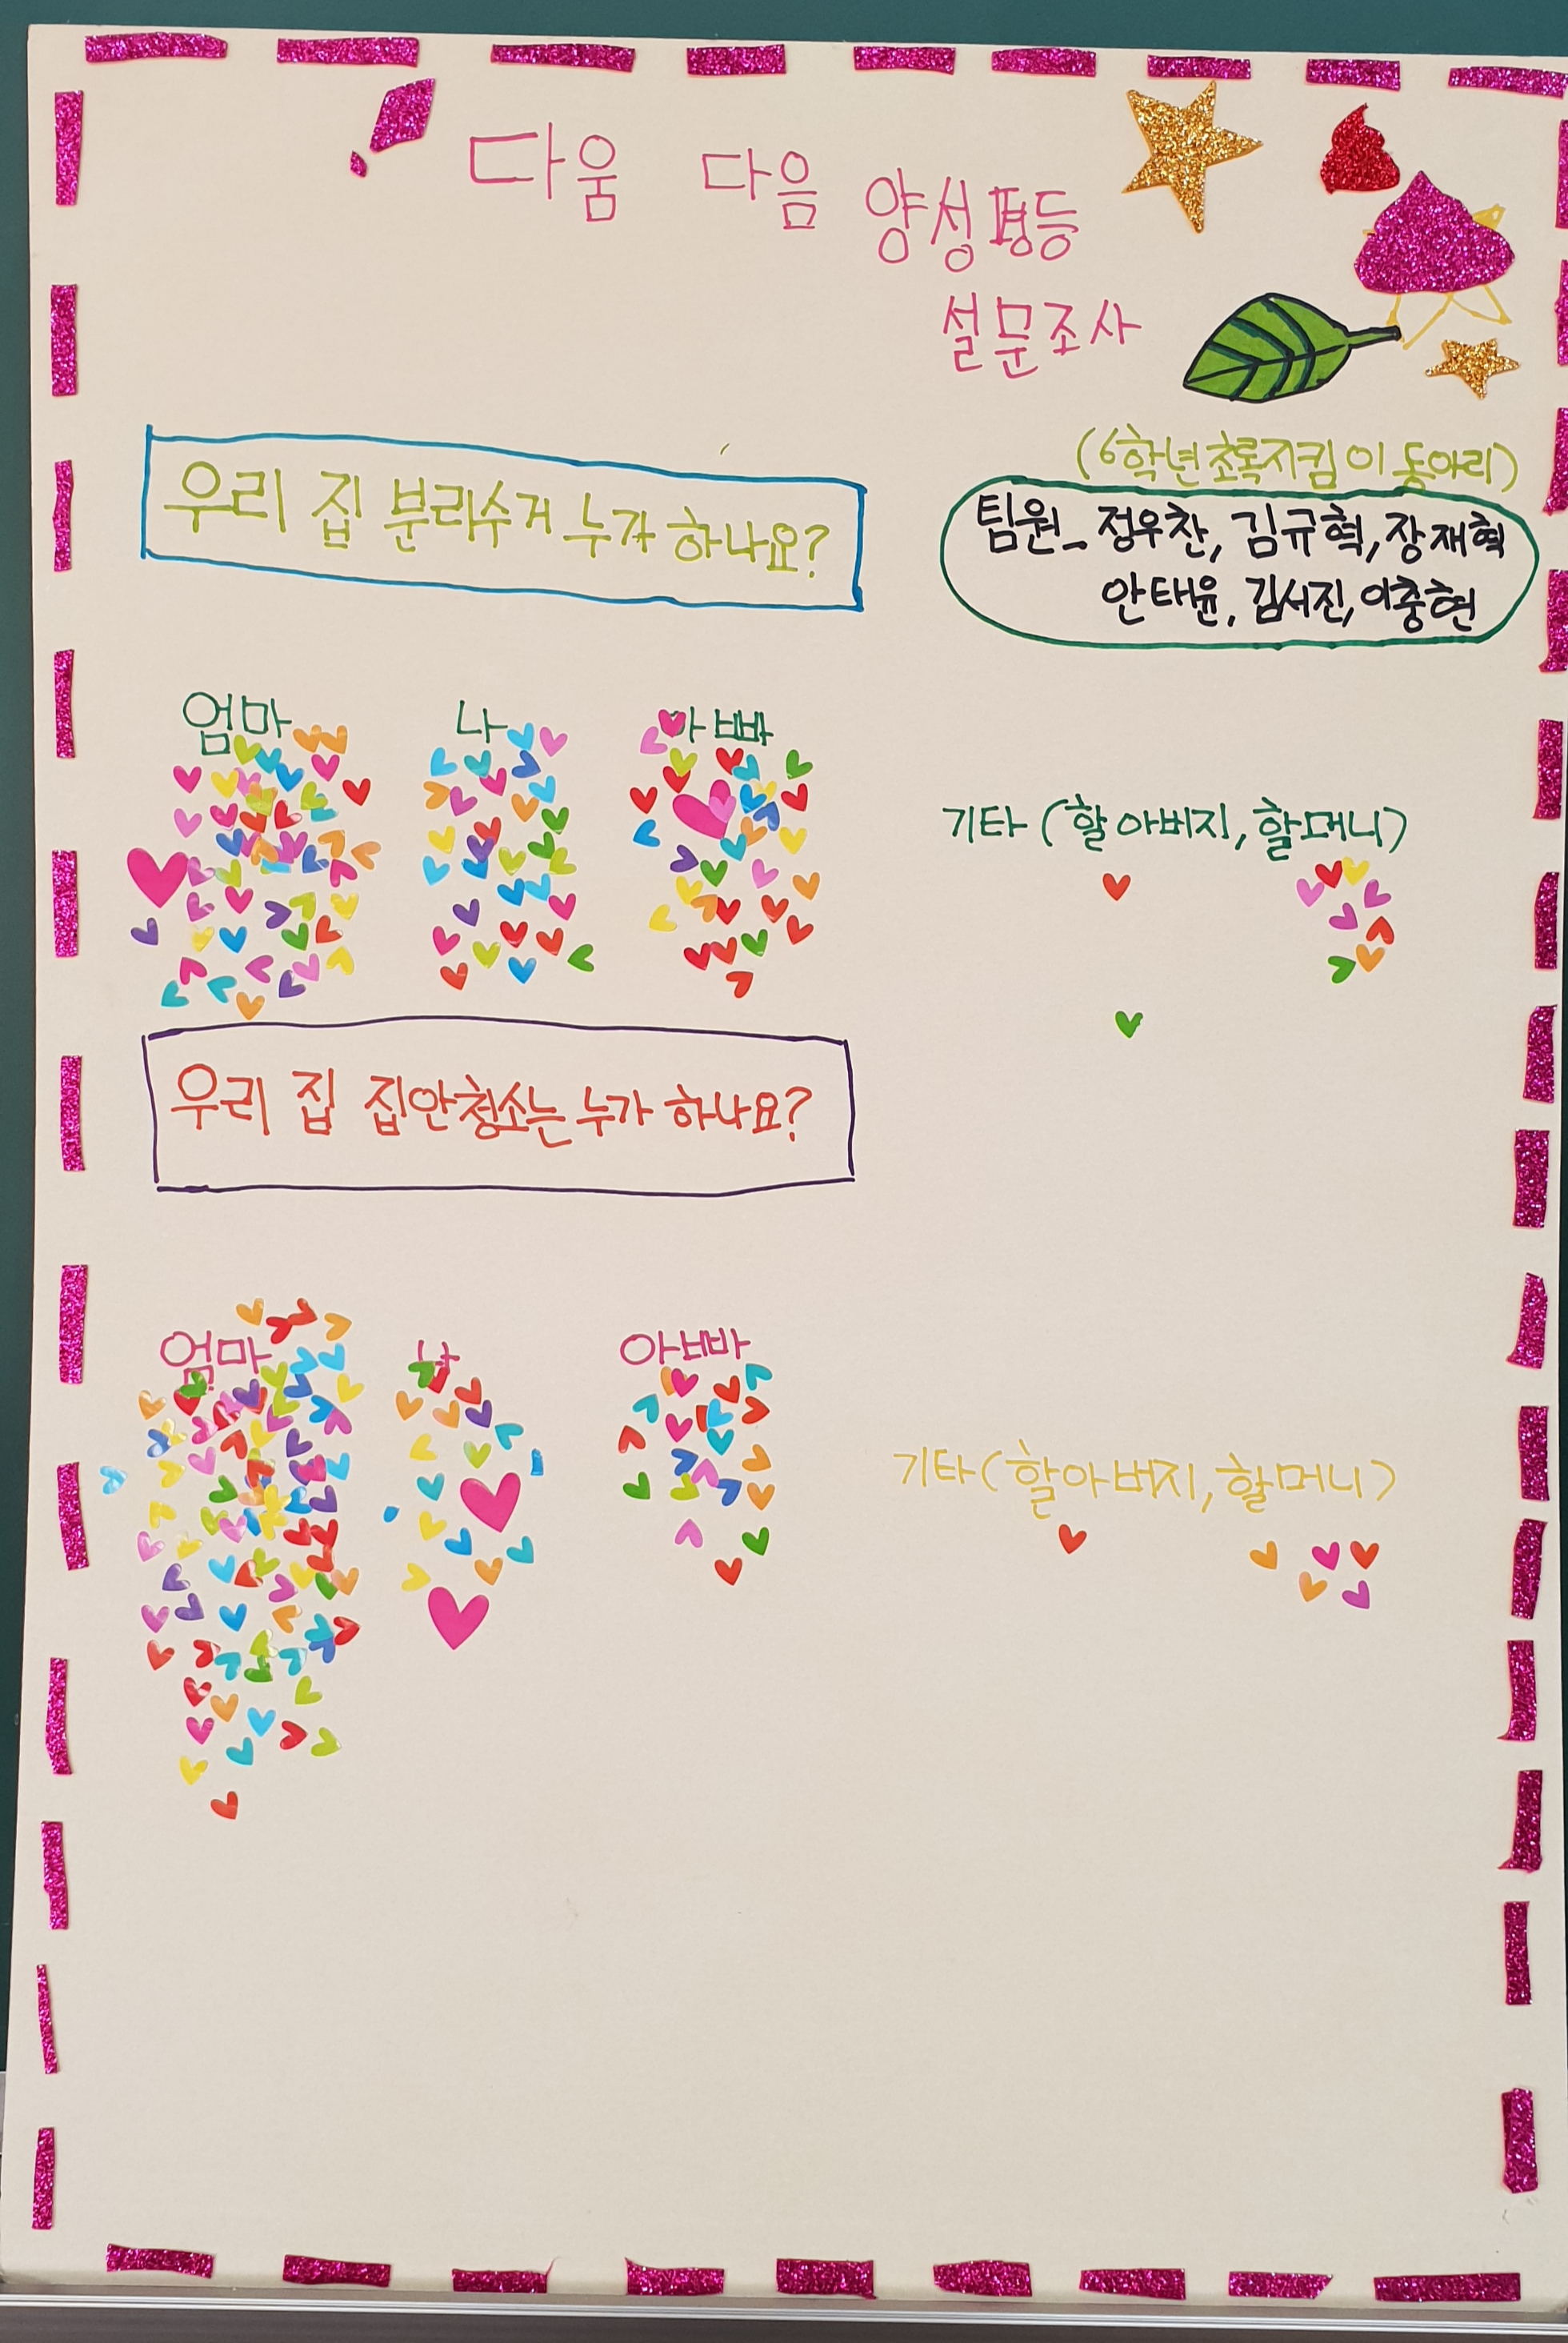 다움 다음 양성평등
설문조사
(6학년 초록지킴이 동아리)
우리 집 분리수거 누가 하나요?
팀원_ 정우찬, 김규혁, 장재혁
안태윤, 김서진, 이충현
엄마 나 아빠
기타 (할아버지, 할머니)
우리 집 집안청소는 누가 하나요?
엄마 나 아빠
기타 (할아버지, 할머니)